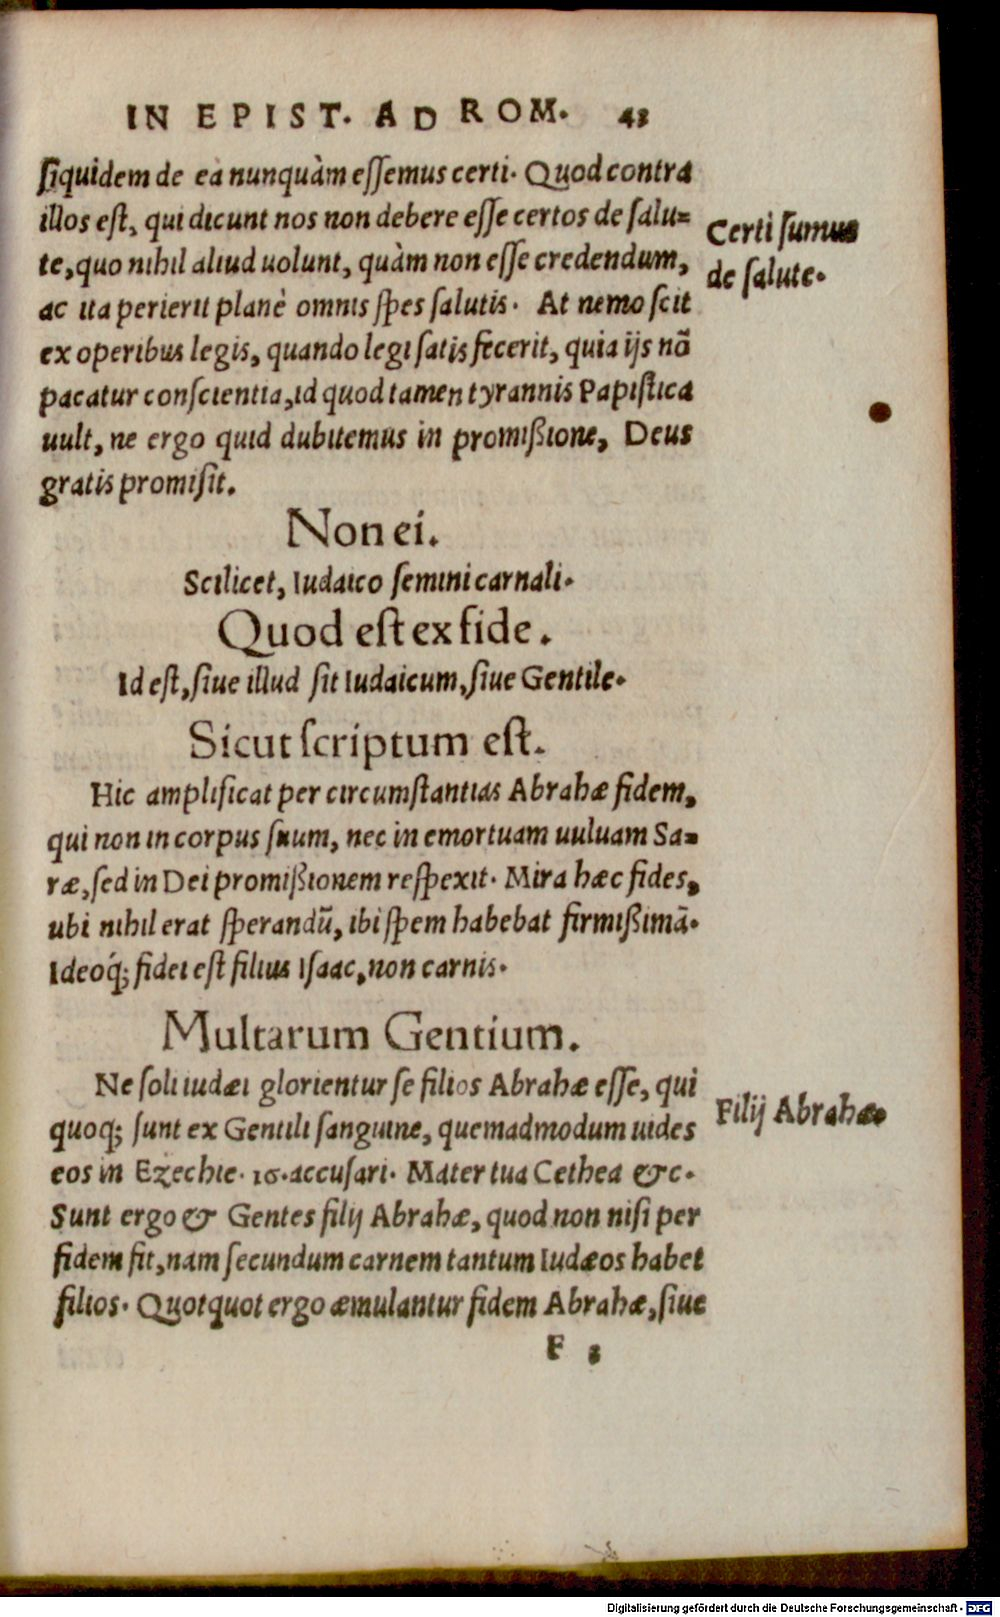 IN EPIST. AD ROM. 43
ſiquidem de ea nunquàm eſſemus certi. Quod contra
illos eſt, qui dicunt nos non debere eſſe certos de ſalu=
te, quo nihil aliud uolunt, quàm non eſſe credendum,
ac ita perierit planè omnis ſpes ſalutis. At nemo ſcit
ex operibus legis, quando legi ſatis fecerit, quia ijs nõ
pacatur conſcientia, id quod tamen tyrannis Papiſtica
uult, ne ergo quid dubitemus in promißione, Deus
gratis promiſit.
Certi ſumus
de ſalute.
Non ei.
Scilicet, Iudaico ſemini carnali.
Quod eſt ex fide.
Id eſt, ſiue illud ſit Iudaicum, ſiue Gentile.
Sicut ſcriptum eſt.
Hic amplificat per circumſtantias Abrahæ fidem,
qui non in corpus ſuum, nec in emortuam uuluam Sa=
ræ, ſed in Dei promißionem reſpexit. Mira hæc fides,
ubi nihil erat ſperandũ, ibi ſpem habebat firmißimã.
Ideoq́; fidei eſt filius Iſaac, non carnis.
Multarum Gentium.
Ne ſoli iudæi glorientur ſe filios Abrahæ eſſe, qui
quoq; ſunt ex Gentili ſanguine, quemadmodum uides
eos in Ezechie. 16. accuſari. Mater tua Cethea &c.
Sunt ergo & Gentes filij Abrahæ, quod non niſi per
fidem fit, nam ſecundum carnem tantum Iudæos habet
filios. Quotquot ergo æmulantur fidem Abrahæ, ſiue
Filij Abrahæ.
F 3
Digitalisierung gefördert durch die Deutsche Forschungsgemeinschaft - DFG